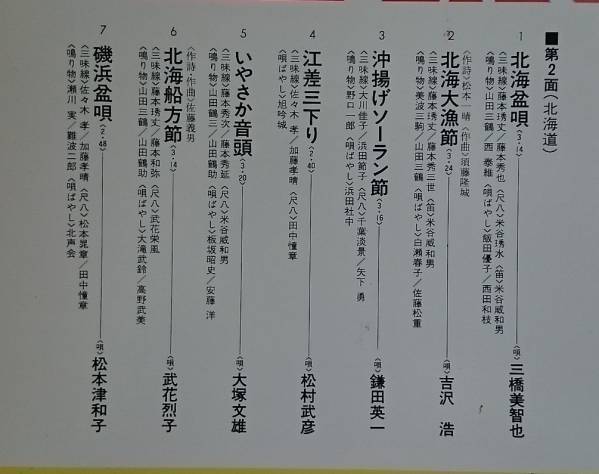 ■第2面〈北海道〉
1 北海盆唄〈3・14〉 〈唄〉三橋美智也
〈三味線〉藤本琇丈／藤本秀也〈尺八〉米谷琇水〈笛〉米谷威和男
〈鳴り物〉山田三鶴／西 泰維〈唄ばやし〉飯田優子／西田和枝
2 北海大漁節〈3・24〉 〈唄〉吉沢 浩
〈作詩〉松本一晴〈作曲〉須藤隆城
〈三味線〉藤本琇丈／藤本秀三世〈笛〉米谷威和男
〈鳴り物〉美波三駒／山田三鶴〈唄ばやし〉白瀬春子／佐藤松重
3 沖揚げソーラン節〈3・16〉 〈唄〉鎌田英一
〈三味線〉大川佳子／浜田節子〈尺八〉千葉淡景／矢下 勇
〈鳴り物〉野口一郎〈唄ばやし〉浜田社中
4 江差三下り〈2・40〉 〈唄〉松村武彦
〈三味線〉佐々木 孝／加藤孝晴〈尺八〉田中憧章
〈唄ばやし〉旭吟城
5 いやさか音頭〈3・20〉 〈唄〉大塚文雄
〈作詩・作曲〉佐藤義男
〈三味線〉藤本秀次／藤本秀延〈尺八〉米谷威和男
〈鳴り物〉山田鶴三／山田鶴助〈唄ばやし〉板坂昭史／安藤 洋
6 北海船方節〈3・14〉 〈唄〉武花烈子
〈三味線〉藤本琇丈／藤本和弥〈尺八〉武花栄風
〈鳴り物〉山田三鶴／山田鶴助〈唄ばやし〉大滝武鈴／高野武美
7 磯浜盆唄〈2・48〉 〈唄〉松本津和子
〈三味線〉佐々木 孝／加藤孝晴〈尺八〉松本晃章／田中憧章
〈鳴り物〉瀬川 実／難波二郎〈唄ばやし〉北声会